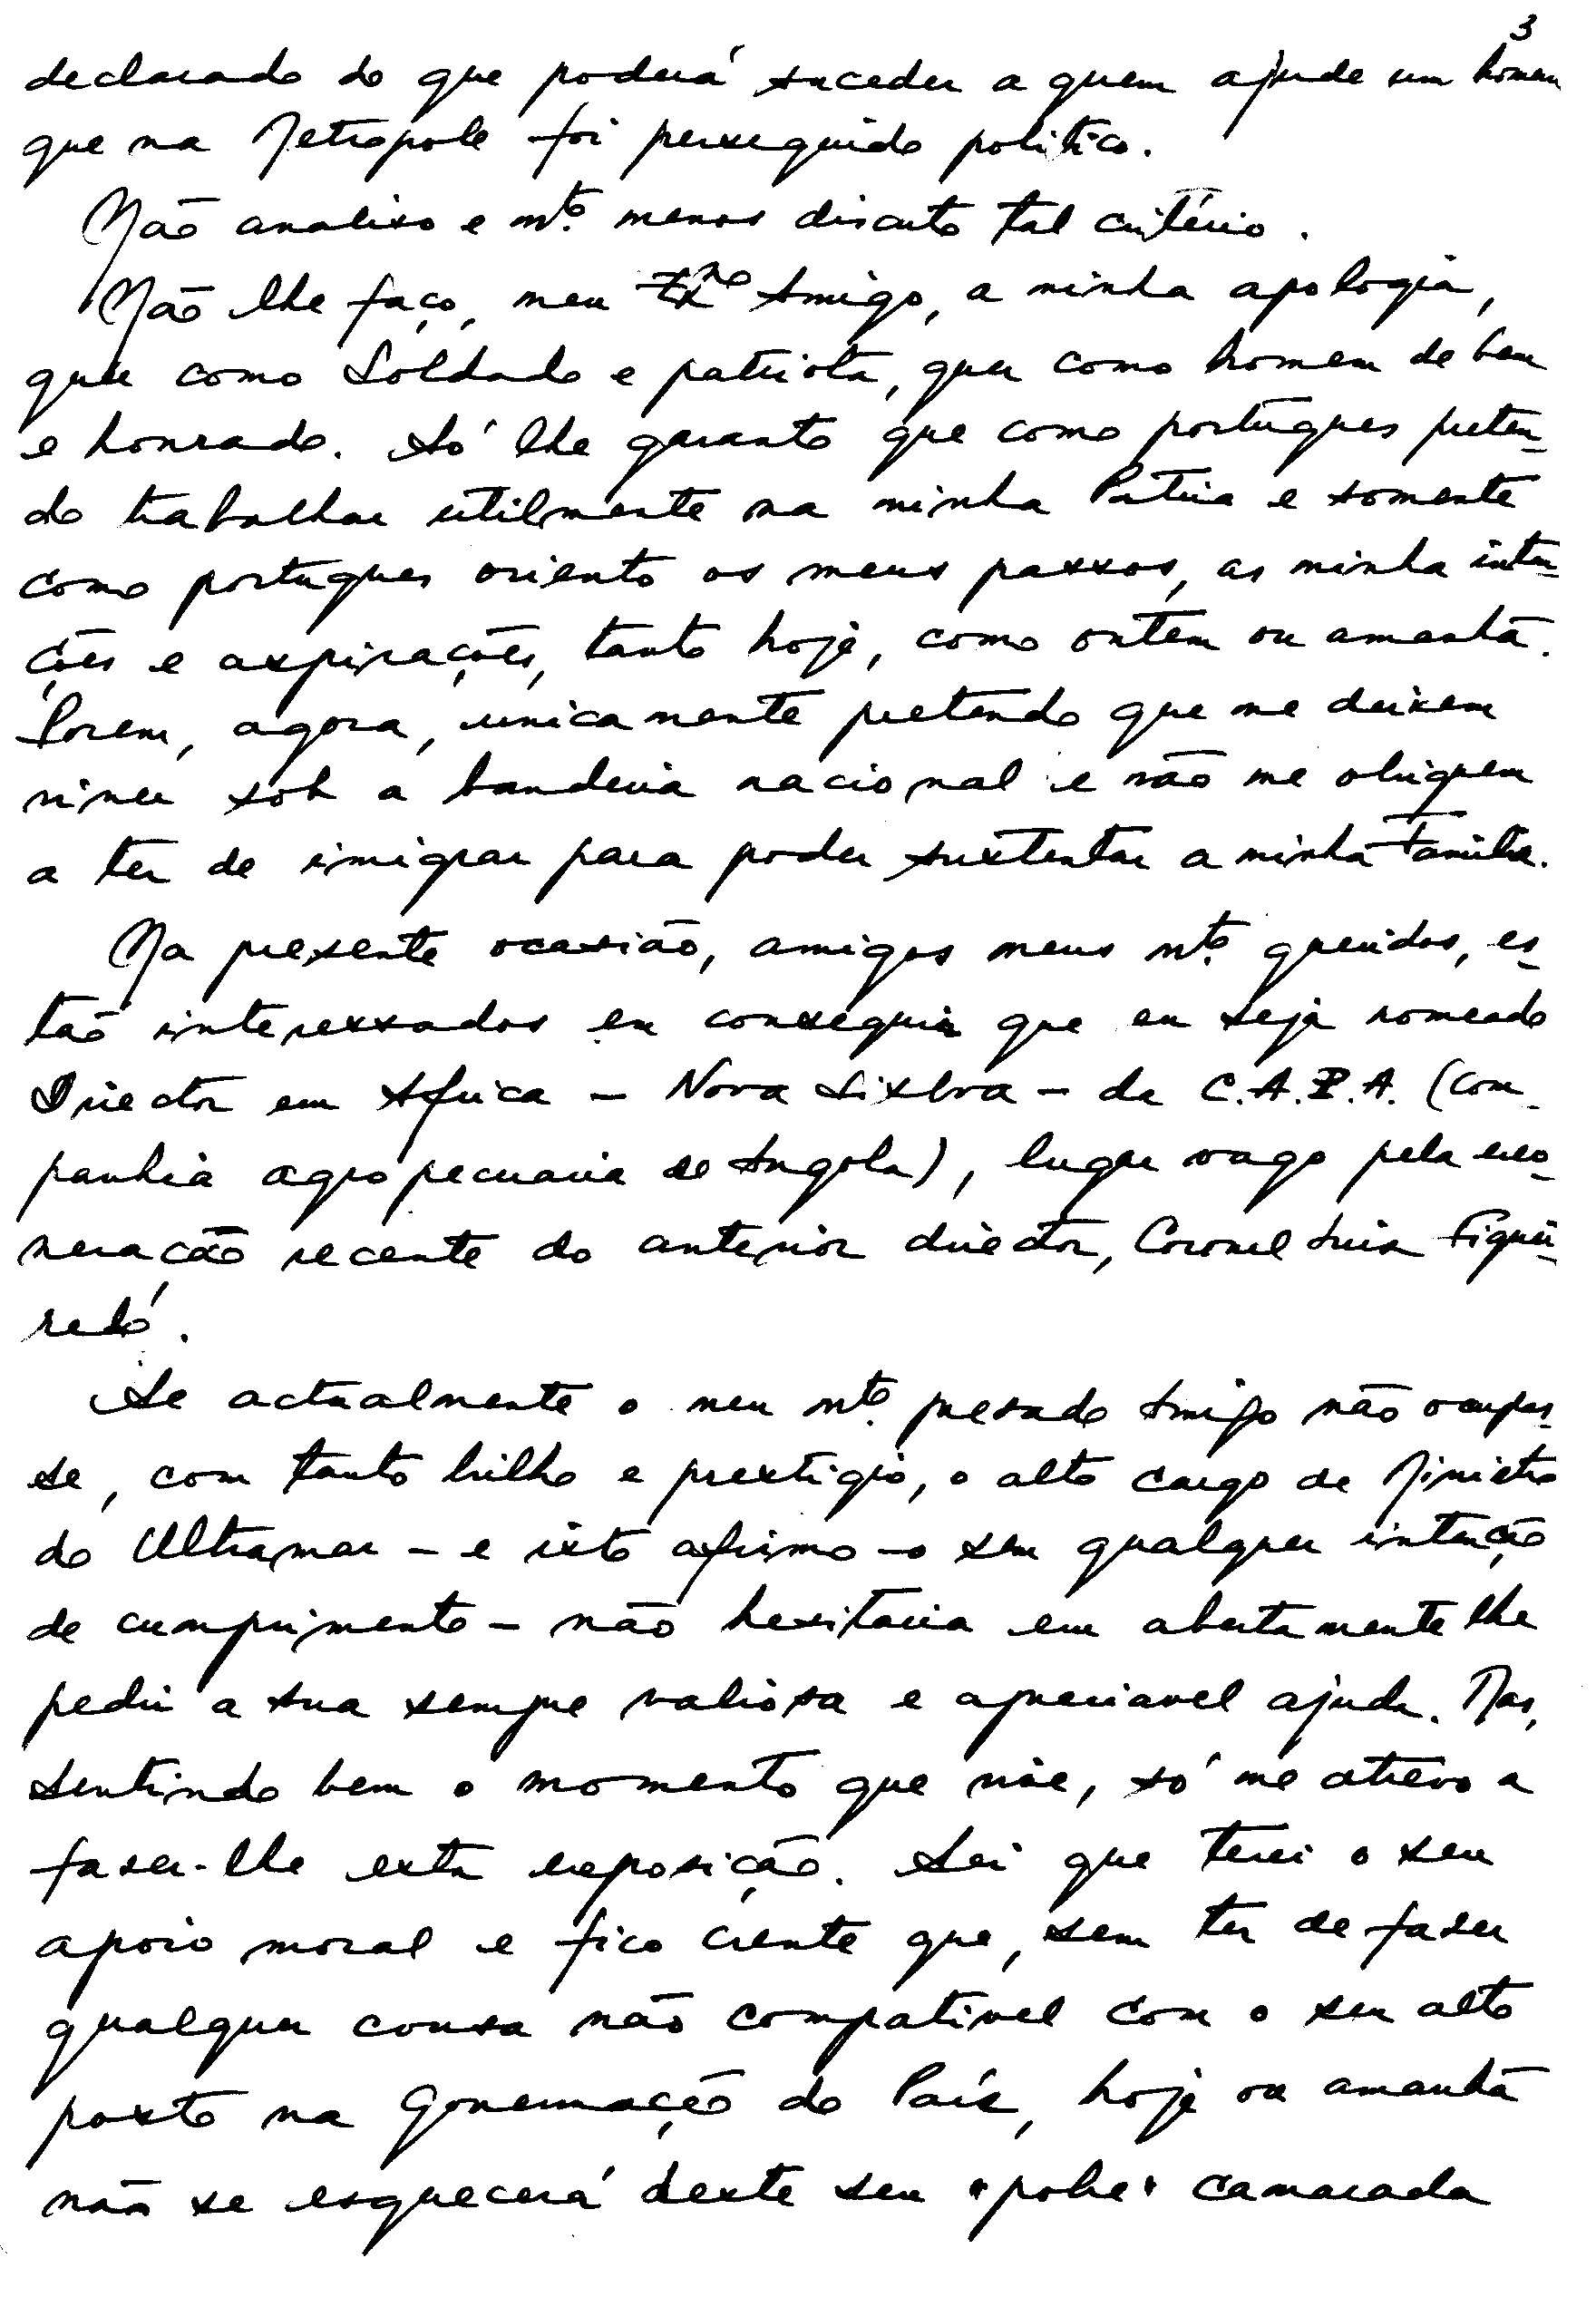 3
declarado do que poderá suceder a quem ajude um homem
que na Metropole foi perseguido politico.
Não analiso e mto. menos discuto tal critério.
Não lhe faço, meu Exmo Amigo, a minha apologia,
quer como Soldado e patriota, quer como homem de bem
e honrado. Só lhe garanto que como português preten-
do trabalhar utilmente na minha Patria e somente
como português oriento os meus passos, as minha inten-
ções e aspirações, tanto hoje, como ontem ou amanhã.
Porem, agora, unicamente pretendo que me deixem
viver sob a bandeira nacional e não me obriguem
a ter de imigrar para poder sustentar a minha familia.
Na presente ocasião, amigos meus mto. queridos, es-
tão interessados em conseguir que eu seja nomeado
Director em Africa - Nova Lisboa - da C.A.P.A. (Com-
panhia agro pecuaria de Angola), lugar vago pela exo-
neração recente do anterior director, Coronel Luis Figuei-
redo.
Se actualmente o meu mto. presado Amigo não ocupas-
se, com tanto brilho e prestigio, o alto cargo de Ministro
do Ultramar - e isto afirmo-o sem qualquer intenção
de cumprimento - não hesitaria em abertamente lhe
pedir a sua sempre valiosa e apreciavel ajuda. Mas,
sentindo bem o momento que vive, só me atrevo a
faser-lhe esta exposição. Sei que terei o seu
apoio moral e fico ciente que, sem ter de faser
qualquer cousa não compativel com o seu alto
posto na Governação do País, hoje ou amanhã
não se esquecerá deste seu "pobre" camarada